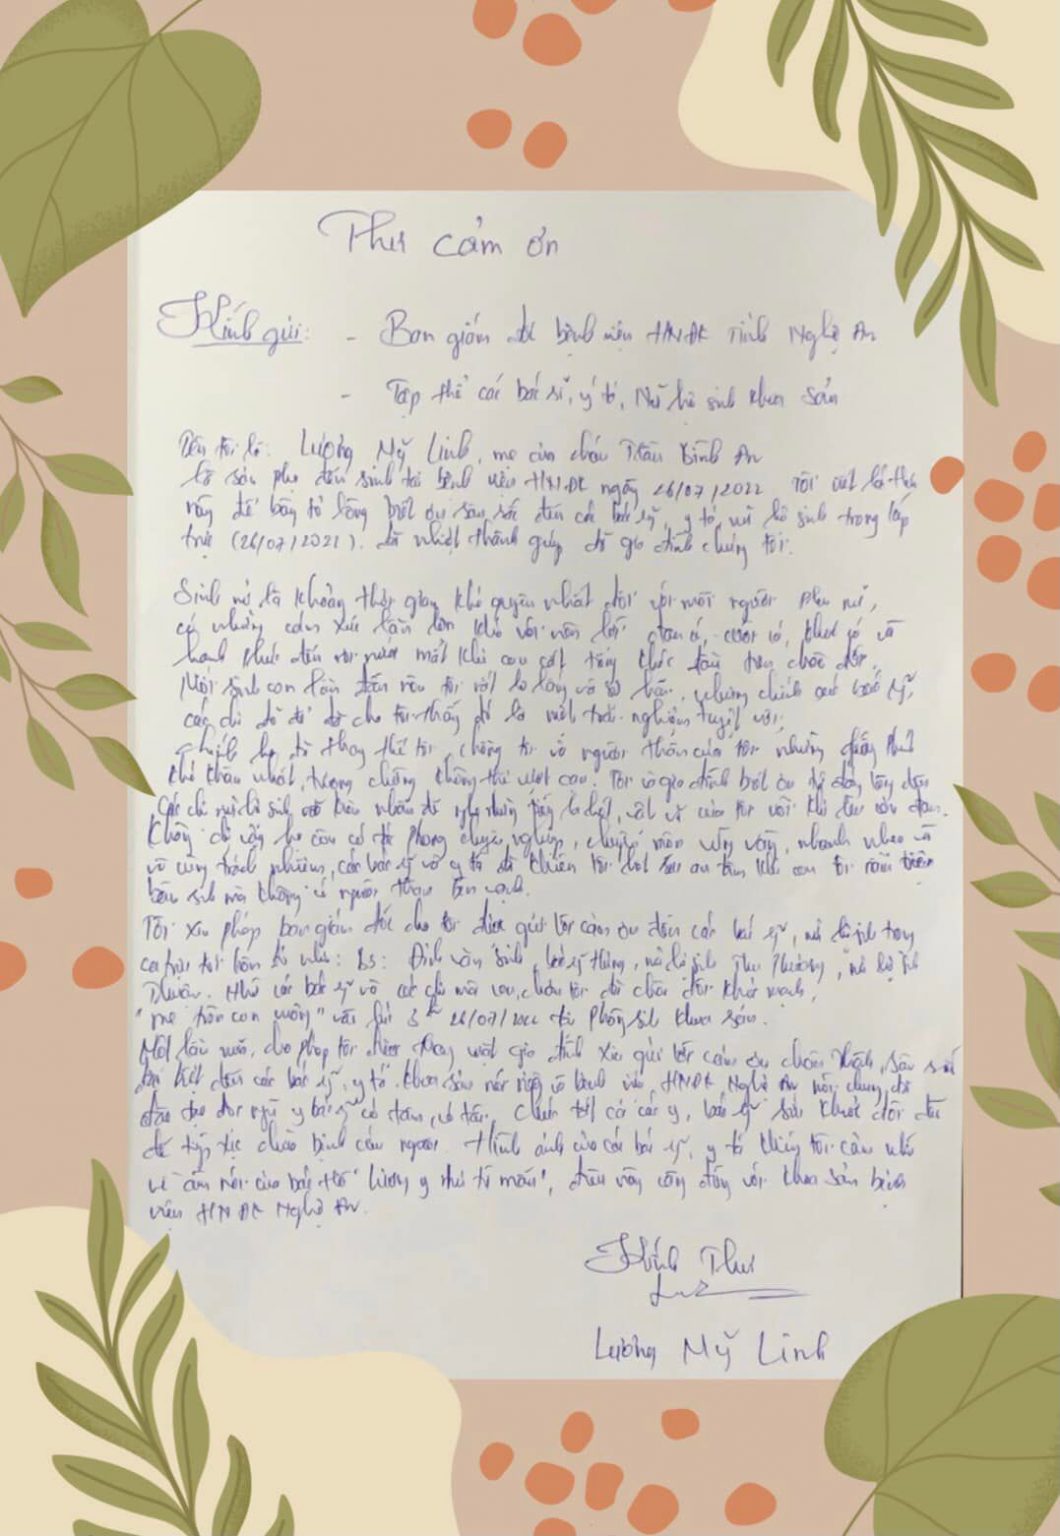 Thư cảm ơn
Kính gửi: - Ban giám đốc bệnh viện HNĐK Tỉnh Nghệ An
- Tập thể các bác sĩ, y tá, Nữ hộ sinh khoa sản
Tên tôi là: Lương Mỹ Linh, mẹ của cháu Trần Bình An
là sản phụ đến sinh tại bệnh viện HNĐK ngày 26/07/2022 Tôi viết lá thư
này để bày tỏ lòng biết ơn sâu sắc đến các bác sỹ, y tá, nữ hộ sinh trong kíp
trực (26/07/2021). đã nhiệt thành giúp đỡ gia đình chúng tôi.
Sinh nở là khoảng thời gian khó quên nhất đối với mỗi người phụ nữ,
có những cảm xúc lẫn lộn khó với nên lời đau có, cười có, khóc có và
hạnh phúc đến rơi nước mắt khi con cất tiếng khóc đầu tiên chào đời.
Một sinh con lần đầu nên tôi rất lo lắng và nhưng chính các bác sỹ,
các chị đã đỡ cho tôi thấy đó là một trải nghiệm tuyệt vời.
họ đã thay thế tôi, chồng tôi và người thân của tôi những giây phút
khó khăn nhất, tưởng chừng không thể vượt qua. Tôi và gia đình biết ơn
các chị nữ hộ sinh kiên nhẫn để vất vả của tôi với khi đau
Không chỉ vậy họ còn có tác phong chuyên nghiệp, chuyên môn vững vàng, nhanh nhẹn và
vô cùng trách nhiệm, các bác sỹ và y tá đã khiến tôi an tâm khi con tôi
mà không có người thân bên cạnh.
Tôi xin phép ban giám đốc cho tôi được gửi lời cảm ơn đến các bác sỹ, nữ hộ sinh trong
ca trực tôi hôm đó như: Bs: Đinh Văn Sinh, bác sỹ Hùng, nữ hộ sinh Thu Phương, nữ hộ sinh
Nhờ các bác sỹ và các chị mà con, cháu tôi đã chào đời khoẻ mạnh,
"mẹ tròn con vuông" vào lúc 26/07/2022 tại Phòng sinh khoa sản.
Một lần nữa, cho phép tôi được thay mặt gia đình xin gửi lời cảm ơn chân thành, sâu sắc
đến các bác sỹ, y tá khoa sản nói riêng và bệnh viện HNĐK Nghệ An nói chung đã
đào tạo đội ngũ y bác sỹ có tâm, có tài. Chúc tất cả các y, bác sỹ sức khoẻ dồi dào
để tiếp tục chữa bệnh cứu người. Hình ảnh của các bác sỹ, y tá khiến tôi càng nhớ
về câu nói của bác Hồ "Lương y như từ mẫu", điều này càng đúng với khoa sản bệnh
viện HNĐK Nghệ An.
Kính Thư
Lương Mỹ Linh